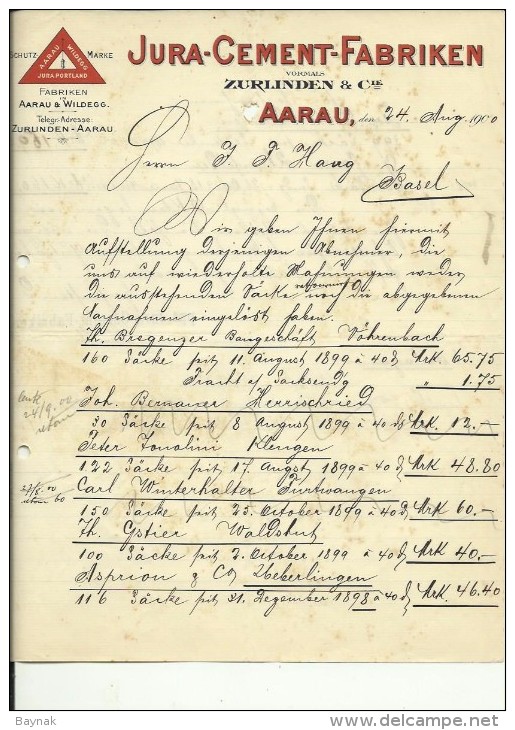 SCHUTZ-MARKE
AARAU WILDEGG
JURA PORTLAND
FABRIKEN
IN
AARAU & WILDEGG.
Telegr.-Adresse:
ZURLINDEN-AARAU.
JURA-CEMENT-FABRIKEN
VORMALS
ZURLINDEN & CIE
AARAU, den 24. Aug. 1900
Herrn J. P. Haag
Basel
Wir geben Ihnen hiermit
Aufstellung derjenigen Abnehmer, die
uns auf wiederholte Mahnungen weder
die ausstehenden Säcke noch die abgegebenen
Nachnahmen eingelöst haben.
Th. Bregenzer Baugeschäft Vöhrenbach
160 Säcke seit 11. August 1899 à 40 d Mrk 65.75
Fracht f. Sacksend'g " 1.75
Joh. Bernauer Herrischried
30 Säcke seit 8 August 1899 à 40 d Mrk 12.-
24/9. 00
retour
Peter Tonolini Klengen
122 Säcke seit 17. August 1899 à 40 d Mrk 48.80
Carl Winterhalter Furtwangen
27/8. 00
retour 60
150 Säcke seit 25. October 1899 à 40 d Mrk 60.-
Th. Gstier Waldshut
100 Säcke seit 2. October 1899 à 40 d Mrk 40.-
Asprion & Co Ueberlingen
116 Säcke seit 21. Dezember 1898 à 40 d Mrk. 46.40
Baynak
www.delcampe.net